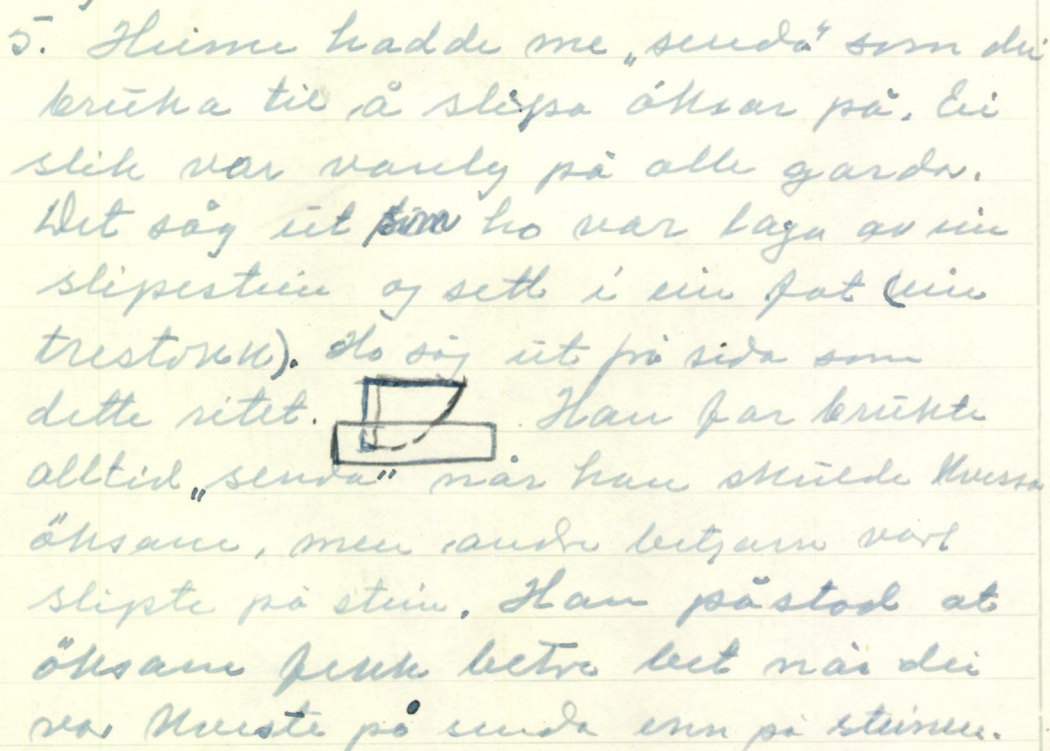 5. Heime hadde me „senda" som dei
bruka til å slipa öksar på. Ei
slik var vanleg på alle gardar.
Det såg ut som ho var laga av ein
slipestein og sett i ein fot (ein
trestokk). Ho såg ut frå sida som
dette ritet. Han far brukte
alltid „senda" når han skulde kvessa
öksane, men andre betjarn vart
slipte på stein. Han påstod at
öksane fekk betre bet når dei
var kveste på senda enn på steinen.